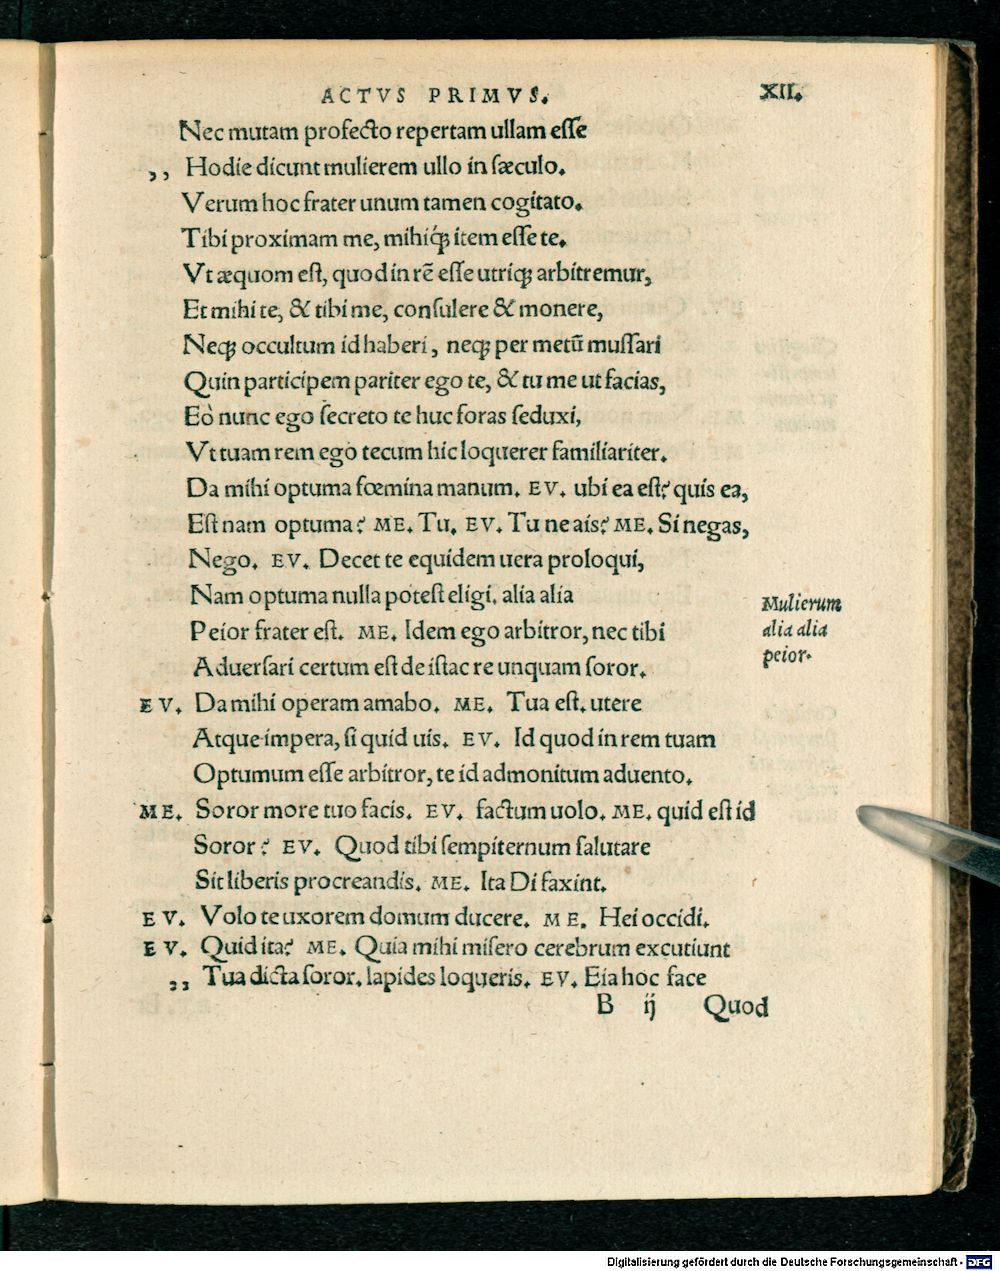 ACTVS PRIMVS.
XII.
Nec mutam profecto repertam ullam eſſe
,, Hodie dicunt mulierem ullo in ſæculo.
Verum hoc frater unum tamen cogitato.
Tibi proximam me, mihiq́ꝫ item eſſe te.
Vt æquom eſt, quod in rē eſſe utriqꝫ arbitremur,
Et mihi te, & tibi me, conſulere & monere,
Neqꝫ occultum id haberi, neqꝫ per metū muſſari
Quin participem pariter ego te, & tu me ut facias,
Eò nunc ego ſecreto te huc foras ſeduxi,
Vt tuam rem ego tecum hic loquerer familiariter.
Da mihi optuma fœmina manum. EV. ubi ea eſt? quis ea,
Eſt nam optuma? ME. Tu. EV. Tu ne ais? ME. Si negas,
Nego. EV. Decet te equidem uera proloqui,
Nam optuma nulla poteſt eligi. alia alia
Peior frater eſt. ME. Idem ego arbitror, nec tibi
Aduerſari certum eſt de iſtac re unquam ſoror.
Mulierum
alia alia
peior.
EV. Da mihi operam amabo. ME. Tua eſt. utere
Atque impera, ſi quid uis. EV. Id quod in rem tuam
Optumum eſſe arbitror, te id admonitum aduento.
ME. Soror more tuo facis. EV. factum uolo. ME. quid eſt id
Soror? EV. Quod tibi ſempiternum ſalutare
Sit liberis procreandis. ME. Ita Di faxint.
EV. Volo te uxorem domum ducere. ME. Hei occidi.
EV. Quid ita? ME. Quia mihi miſero cerebrum excutiunt
,, Tua dicta ſoror. lapides loqueris. EV. Eia hoc face
B ij Quod
Digitalisierung gefördert durch die Deutsche Forschungsgemeinschaft - DFG